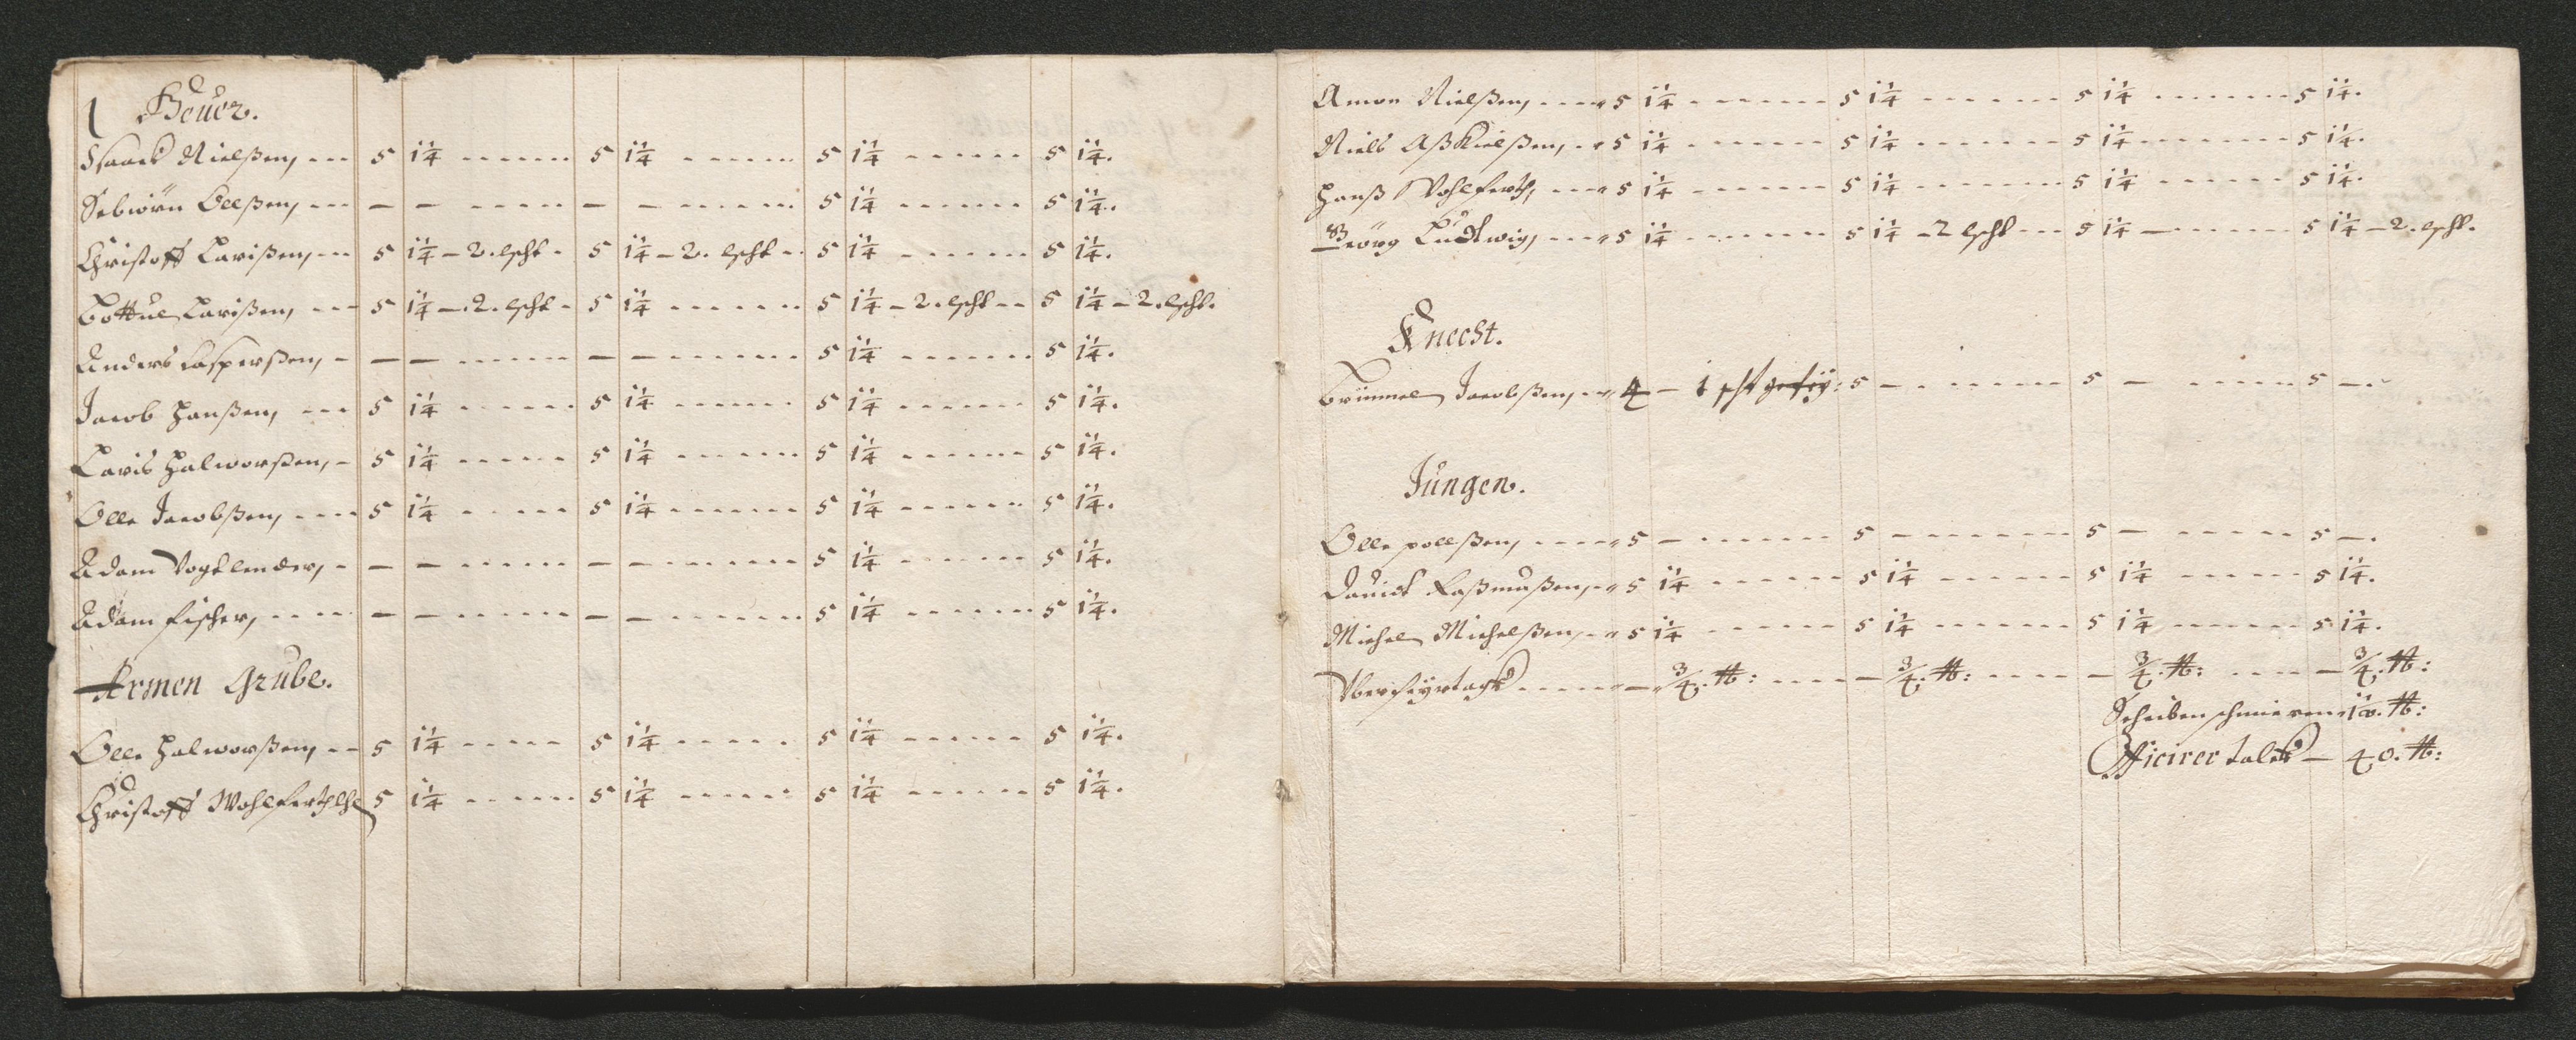 1 Heuer.
Isaack Nielßen, --- 5 1¼ ------ 5 1¼ ------ 5 1¼ ------ 5 1¼.
Sebiörn Olleßen, --- – – ----- – – ------ 5 1¼ ------ 5 1¼.
Christoff Larißen, --- 5 1¼ – 2. lscht - 5 1¼ – 2. lscht -- 5 1¼ ------ 5 1¼.
Bottul Larißen, --- 5 1¼ – 2. lscht - 5 1¼ ------ 5 1¼ – 2. lscht -- 5 1¼ – 2. lscht.
Anders Casperßen, - – – ------ – – ------ 5 1¼ ------ 5 1¼.
Jacob Hanßen, --- 5 1¼ ------ 5 1¼ ------ 5 1¼ ------ 5 1¼.
Laris Halworßen, - 5 1¼ ----- 5 1¼ ------ 5 1¼ ------ 5 1¼.
Olle Jacobßen, ---- 5 1¼ ----- 5 1¼ ------ 5 1¼ ------ 5 1¼.
Adam Vogtlender, - – – ----- – – ------ 5 1¼ ------ 5 1¼.
Adam Fischer, ---- – – ------ – – ------ 5 1¼ ------ 5 1¼.
Armen Grube.
Olle Halworßen, -- 5 1¼ ----- 5 1¼ ----- 5 1¼ ------ 5 1¼.
Christoff Wohlferth 5 1¼ ------ 5 1¼ ----- 5 1¼ ------ 5 1¼.
Amon Nielßen, ---- 5 1¼ ------ 5 1¼ ------ 5 1¼ ------ 5 1¼.
Niels Aßkielßen, -- 5 1¼ ------ 5 1¼ ------ 5 1¼ ------ 5 1¼.
Hanß Wohlferth, ---- 5 1¼ ------ 5 1¼ ------ 5 1¼ ------ 5 1¼.
Georg Ludtwig, ---- 5 1¼ ------ 5 1¼ – 2 lscht --- 5 1¼ ------ 5 1¼ – 2. lscht.
Knecht.
Jacobßen, -- 4 – 1 scht 5 – ------ 5 – ----- 5 –.
Jungen.
Olle pollßen, ----- 5 – ------ 5 – ------ 5 – ----- 5 –.
Dauidt Raßmußen, -- 5 1¼ ------ 5 1¼ ------ 5 1¼ ----- 5 1¼.
Michel Michelßen, -- 5 1¼ ------ 5 1¼ ------ 5 1¼ ------ 5 1¼.
----- – ¾. ℔: ---- – ¾. ℔: ---- – ¾. ℔: ---- – ¾. ℔:
Scheiben schmieren ℔:
Officirer talck – 40. ℔: